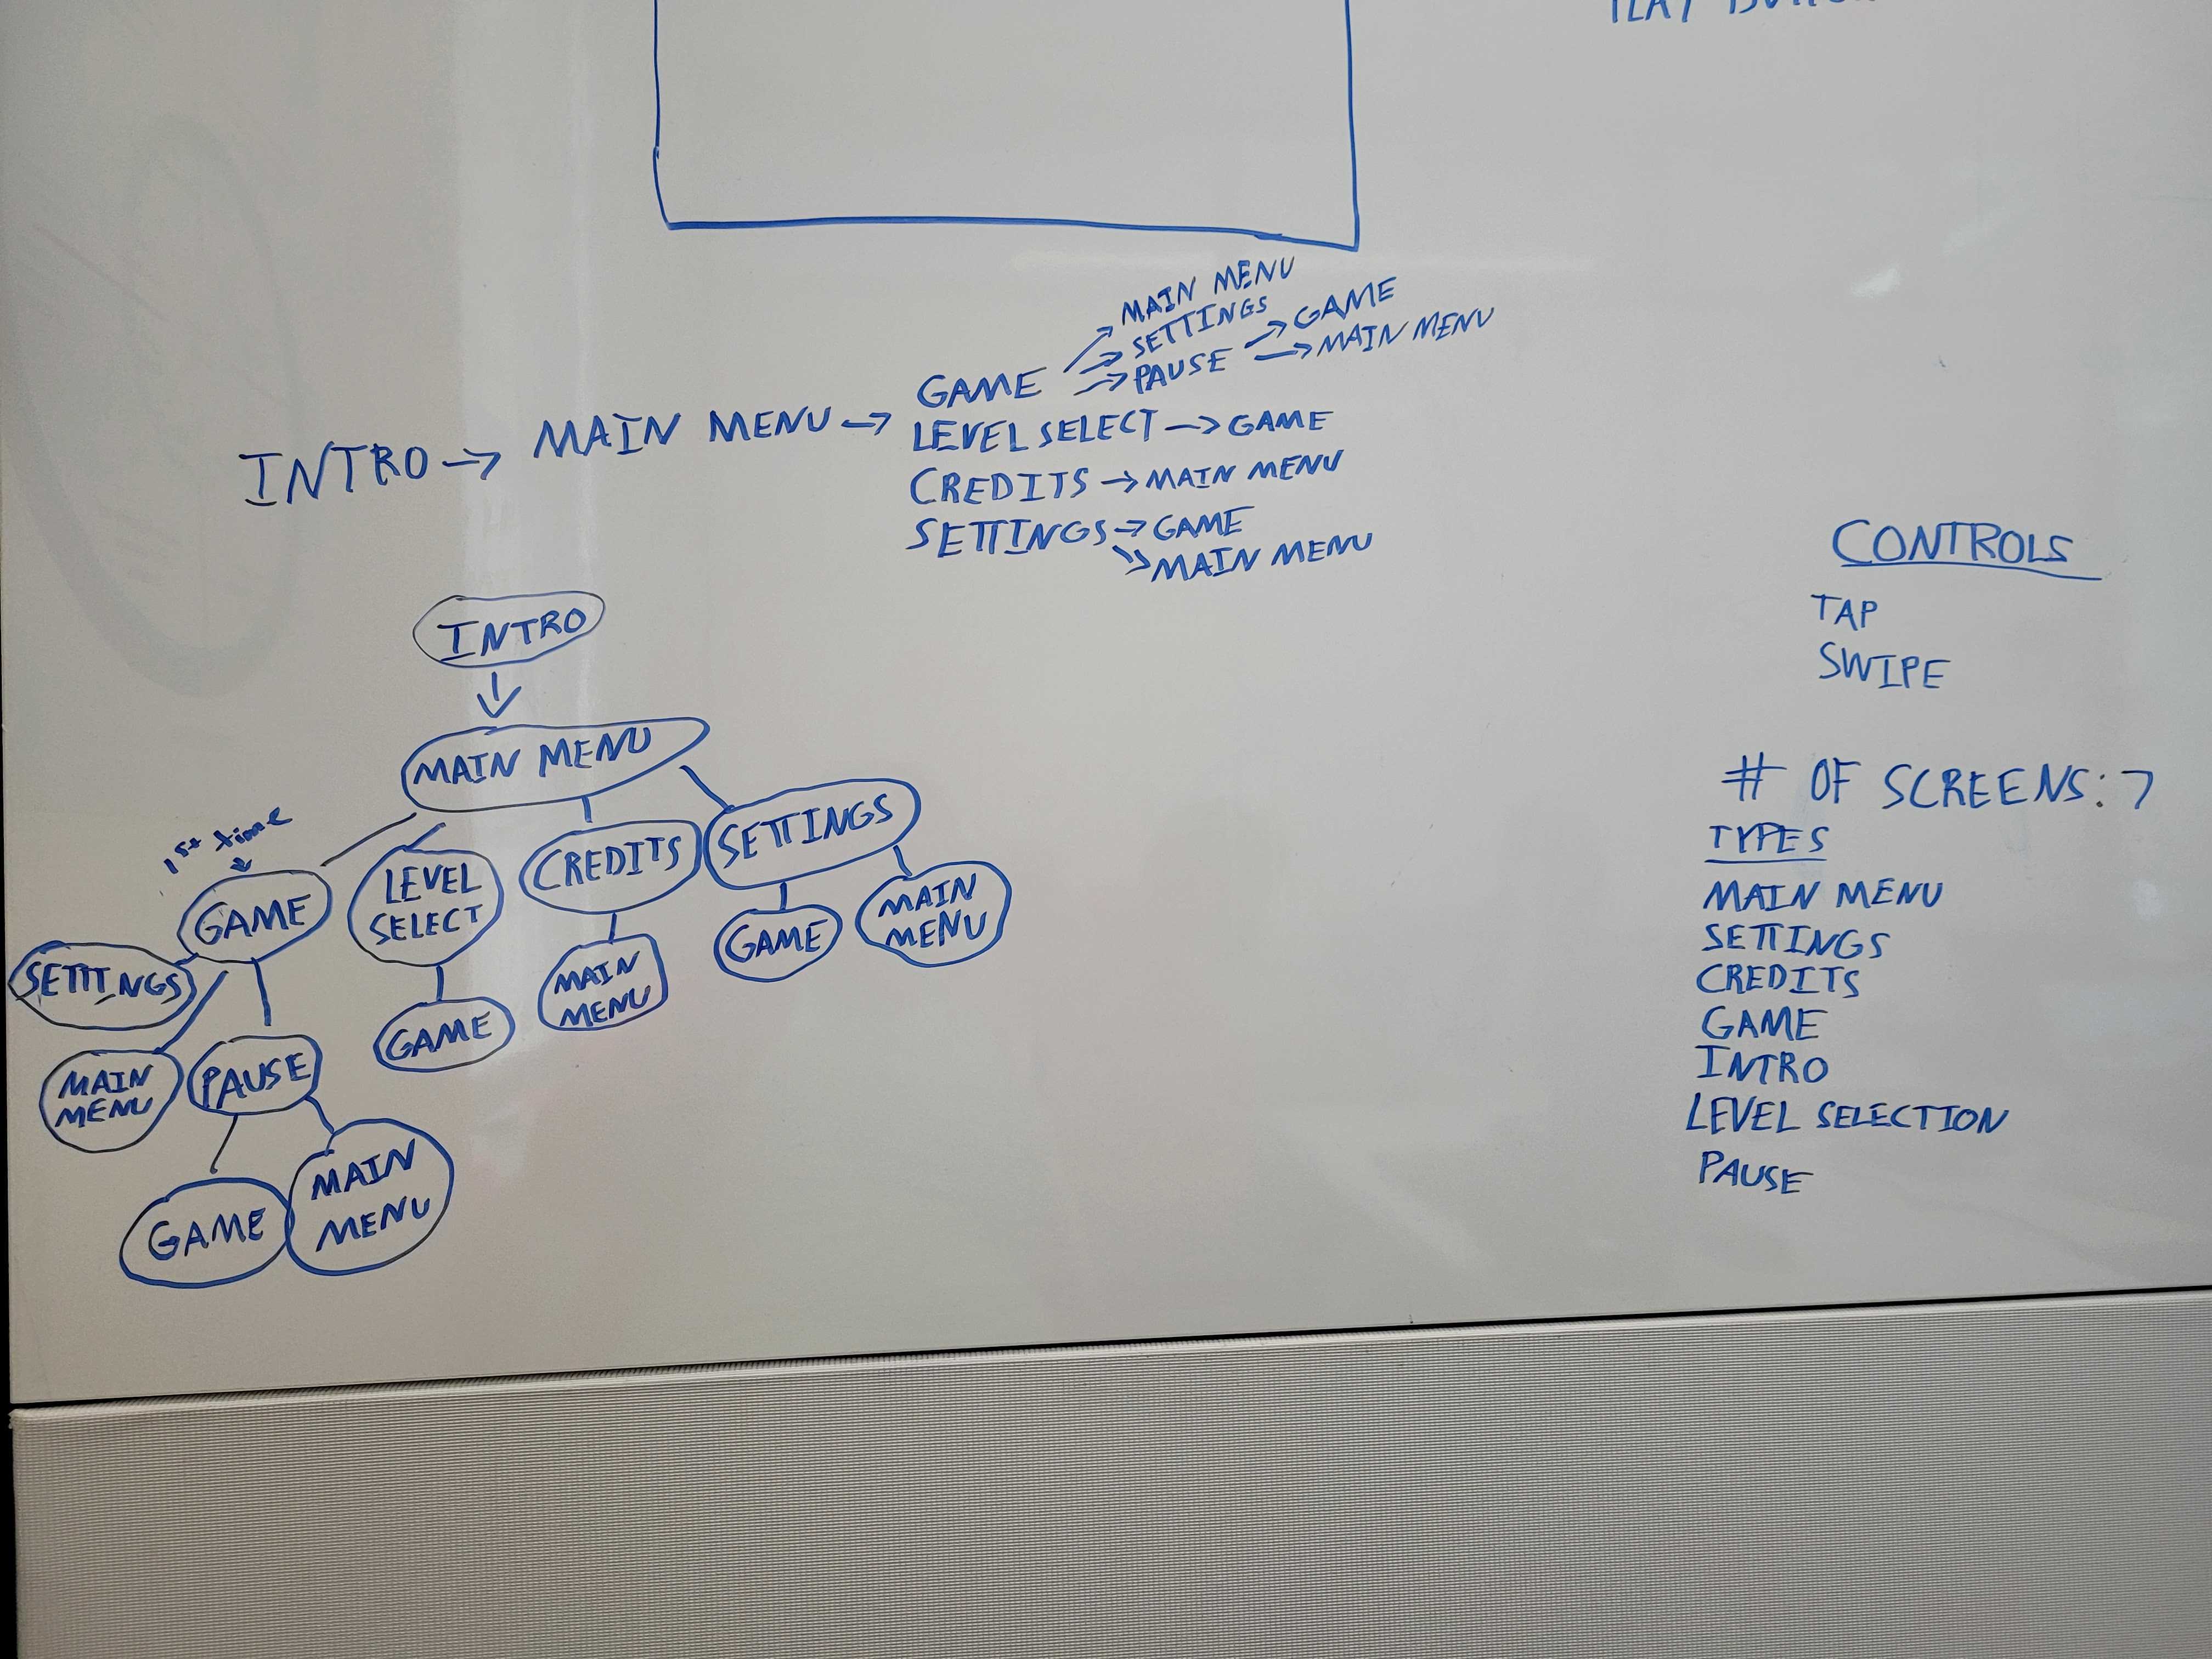 PLAY BUTTON
MAIN MENU
SETTINGS
GAME → PAUSE → GAME
→ MAIN MENU
INTRO → MAIN MENU → LEVEL SELECT → GAME
CREDITS → MAIN MENU
SETTINGS → GAME
MAIN MENU
INTRO
MAIN MENU
1st time
GAME
LEVEL
SELECT
CREDITS
SETTINGS
SETTINGS
MAIN
MENU
PAUSE
GAME
MAIN
MENU
GAME
MAIN
MENU
GAME
MAIN
MENU
CONTROLS
TAP
SWIPE
# OF SCREENS: 7
TYPES
MAIN MENU
SETTINGS
CREDITS
GAME
INTRO
LEVEL SELECTION
PAUSE